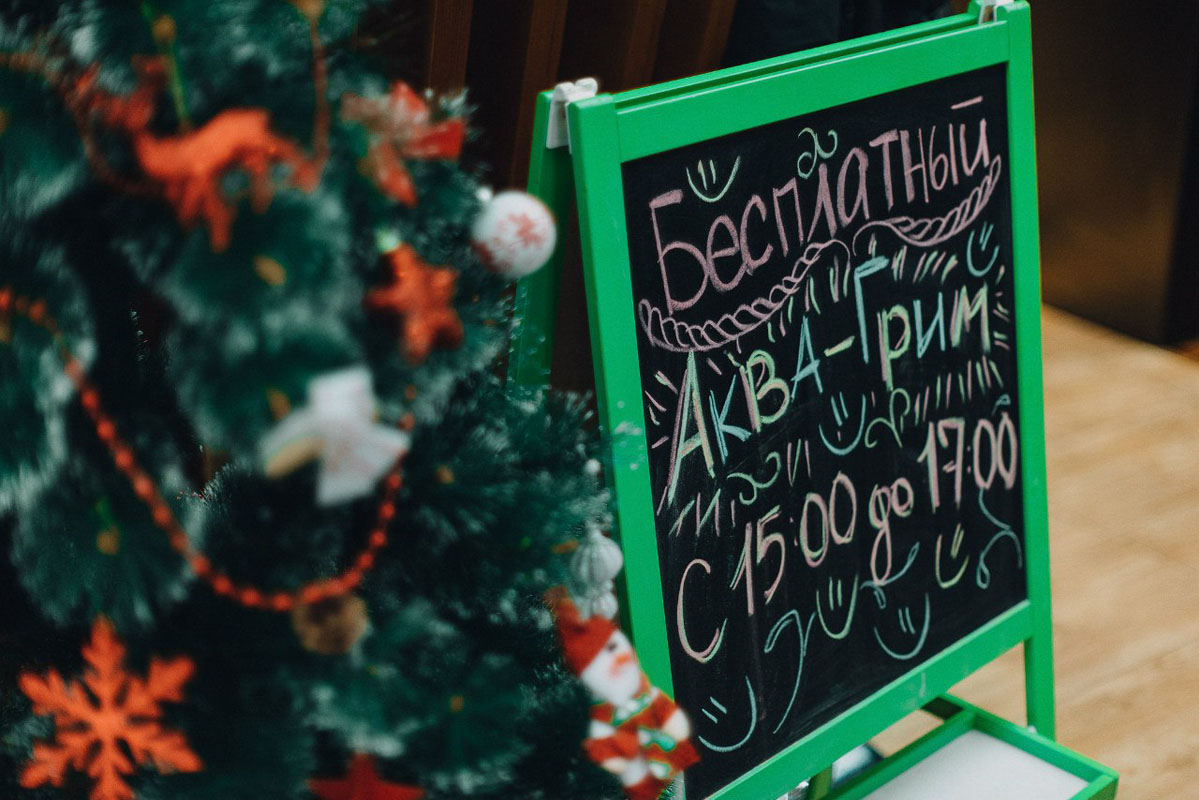 Бесплатный
Аква-Грим
С 15:00 до 17:00